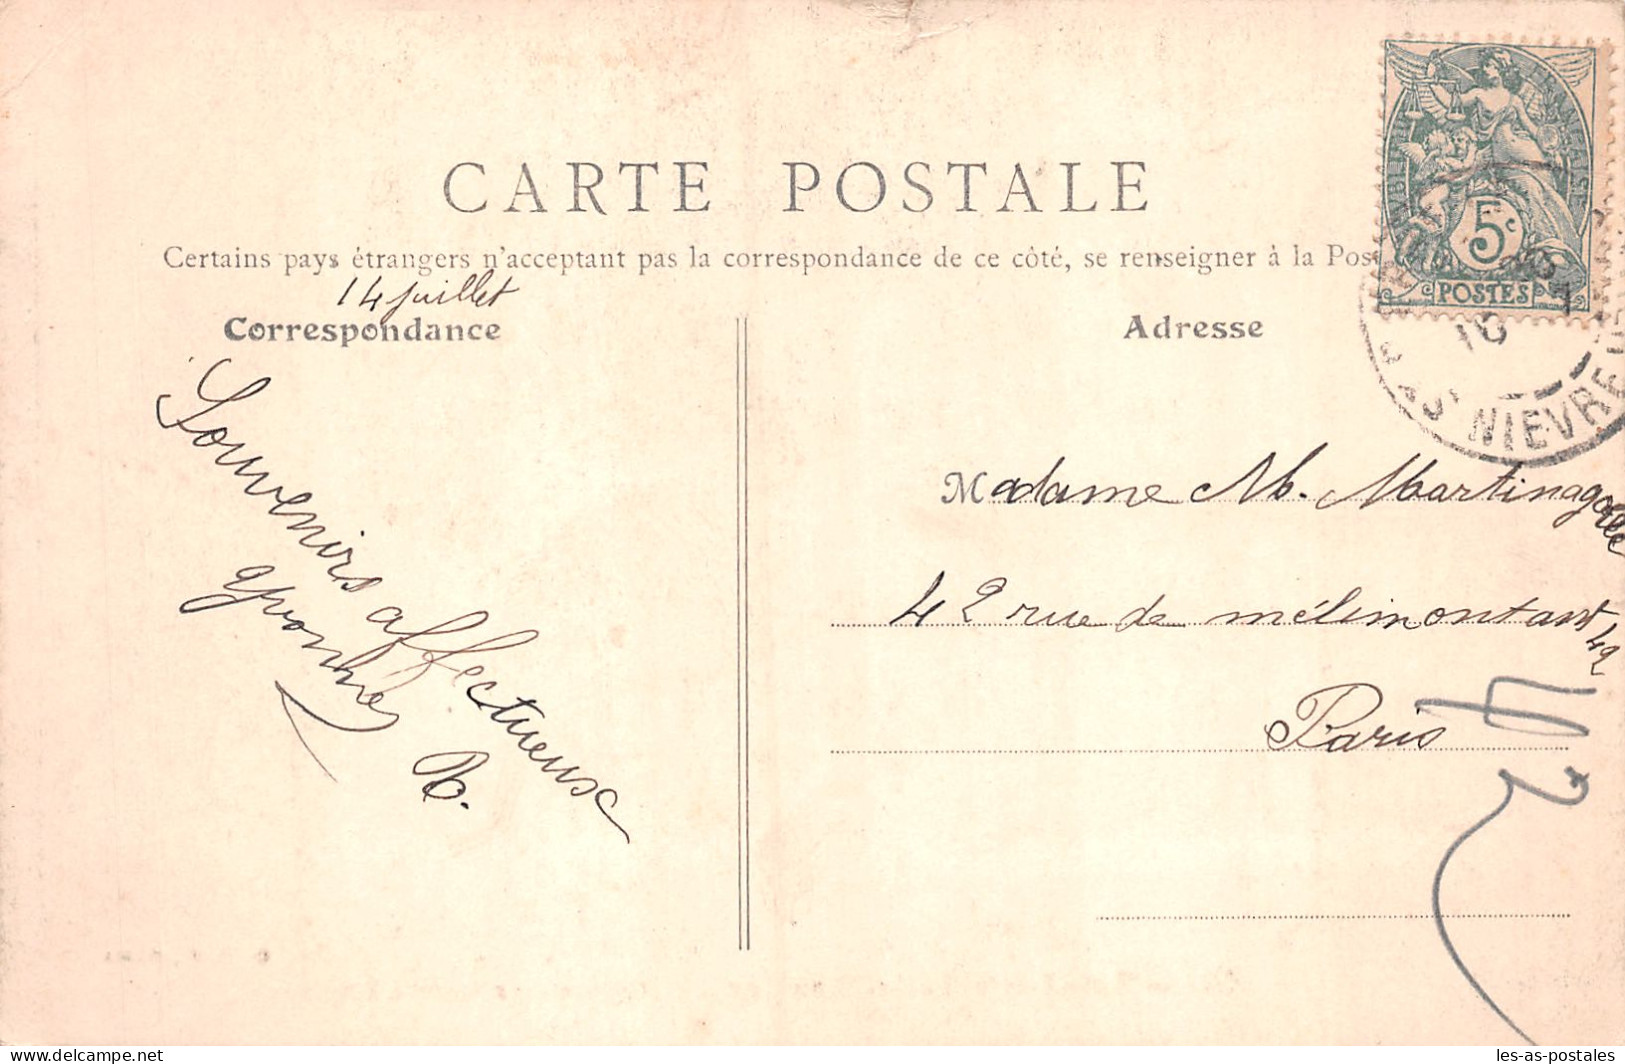 CARTE POSTALE
Certains pays étrangers n'acceptant pas la correspondance de ce côté, se renseigner à la Pos
14 juillet
Correspondance
Souvenirs affectueux
Yvonne
B.
Adresse
5c
POSTES
10
NIEVRE
Madame M. Martinagolle
42 rue de mélimontant 42
Paris
42
les-as-postales